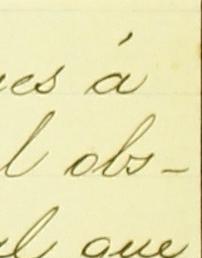 es á
l obs-
al que